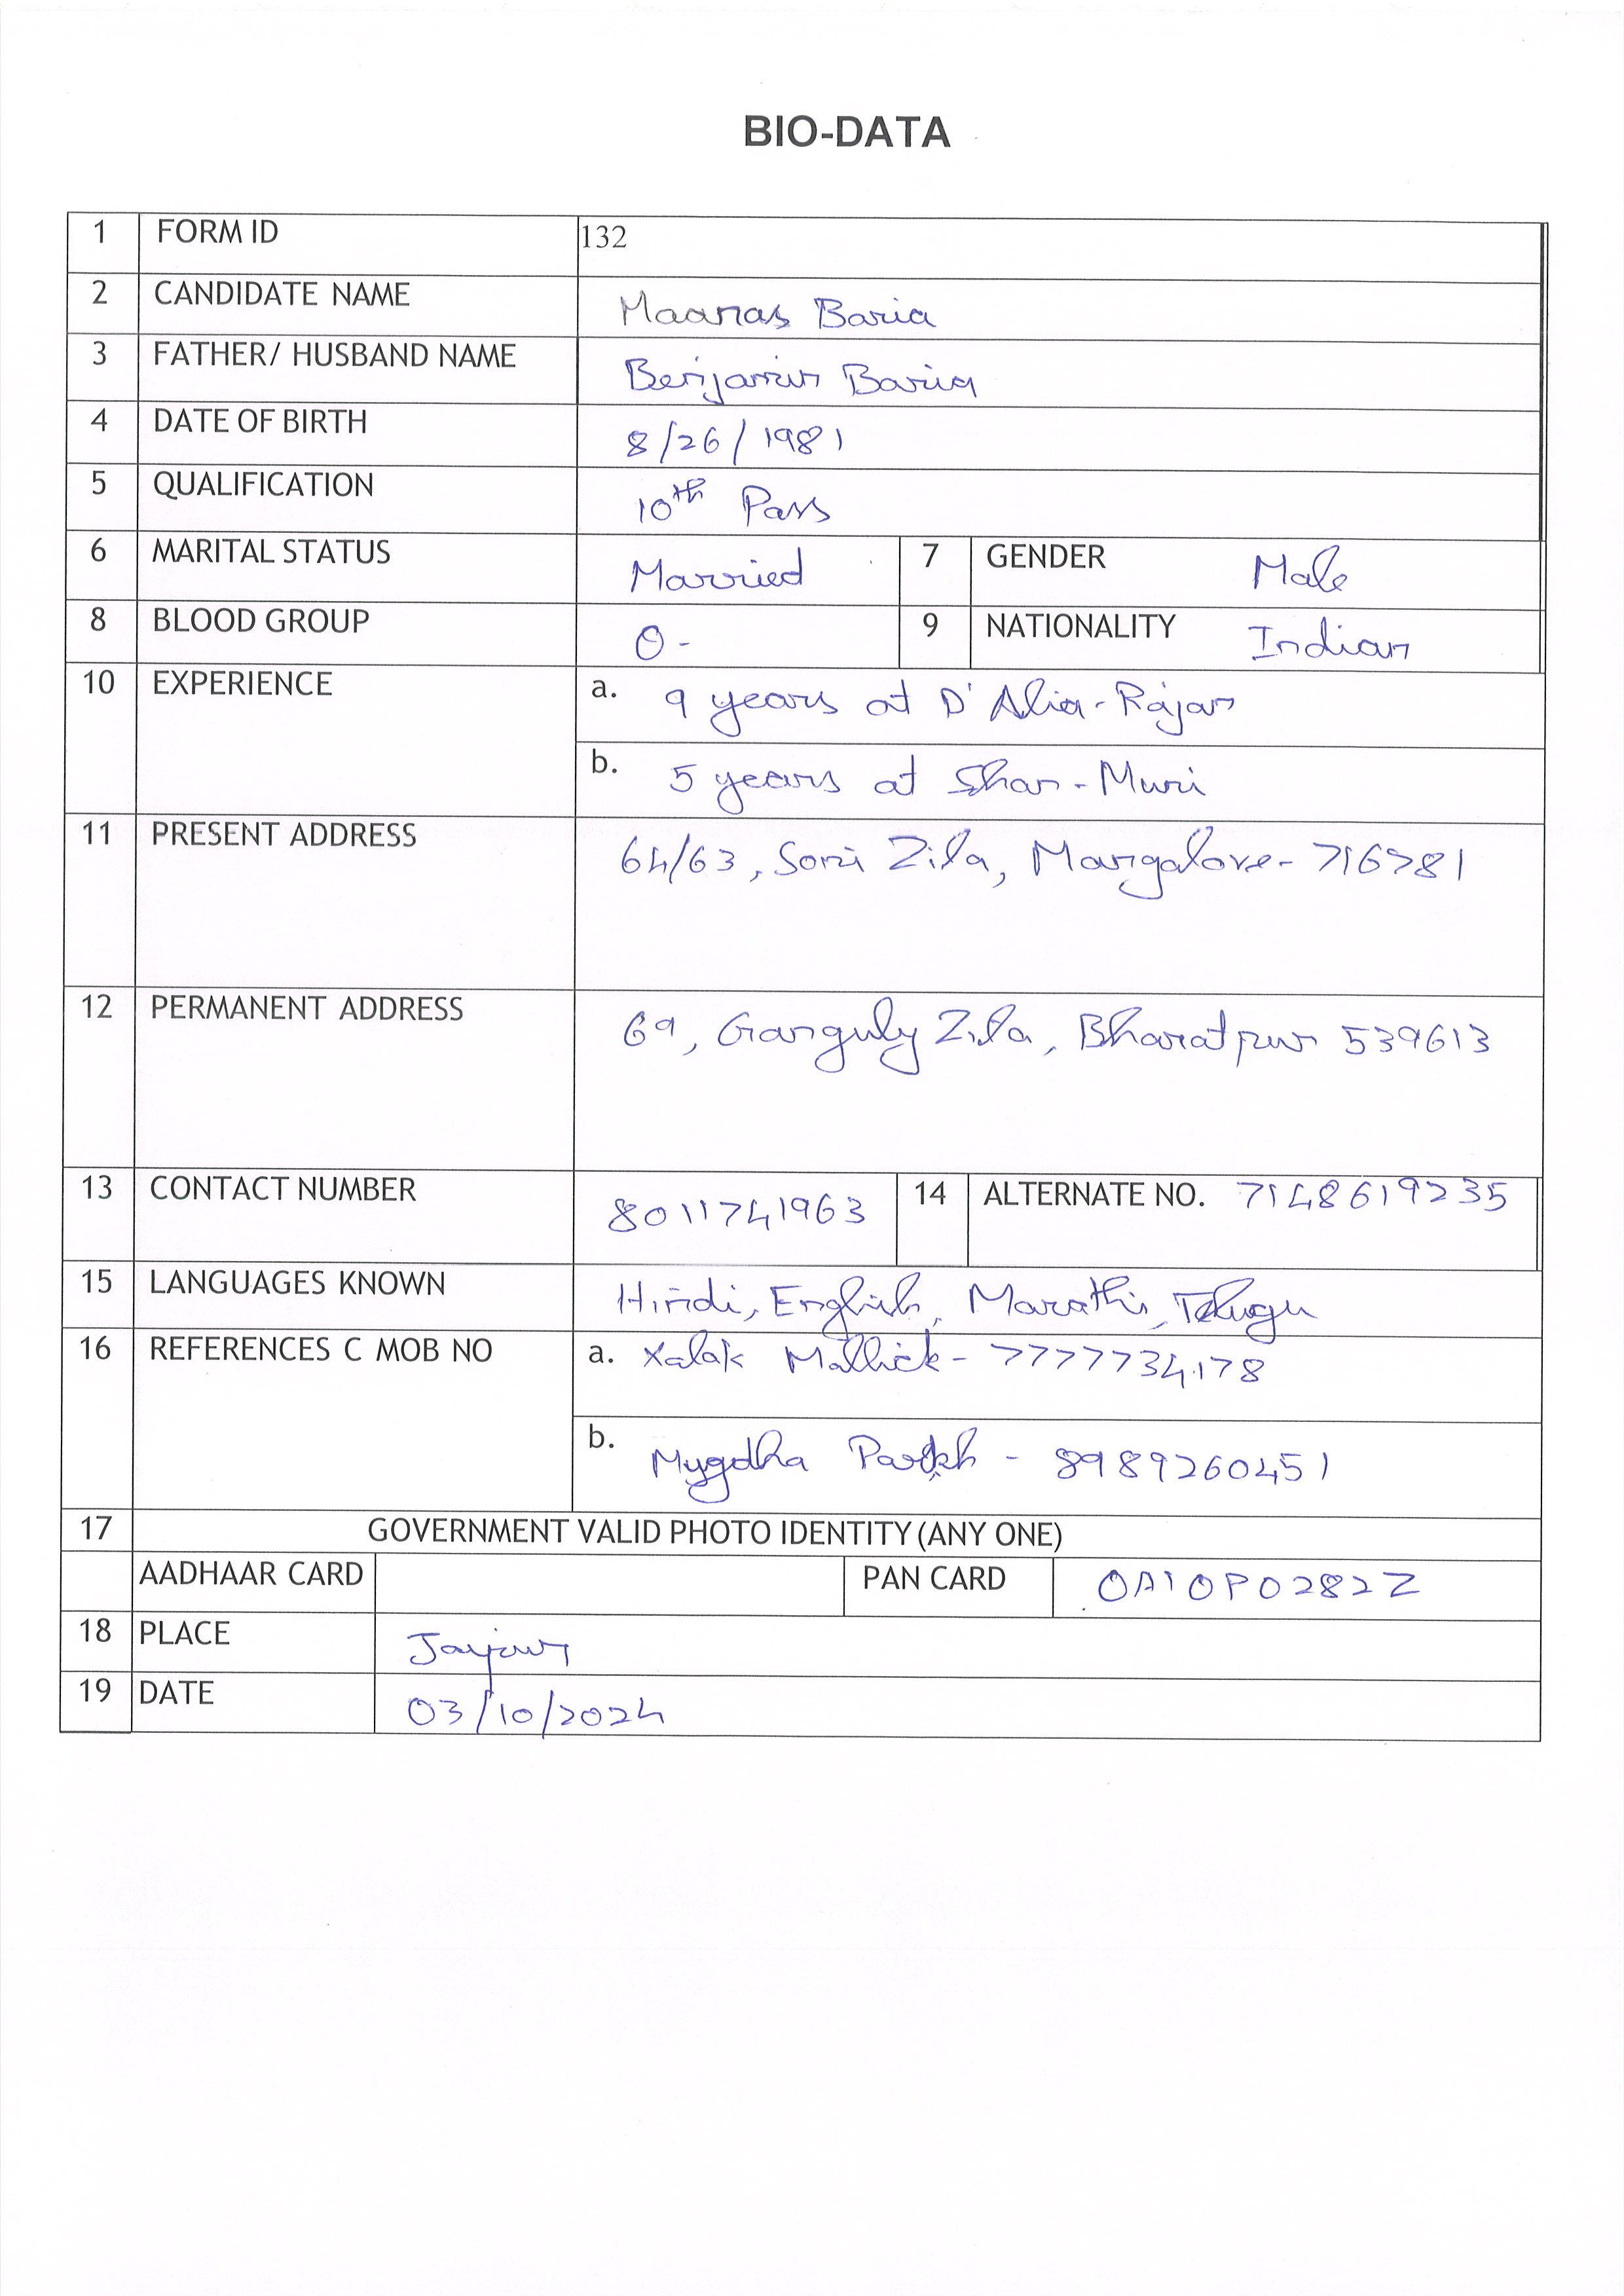 BIO-DATA
1 FORM ID 132
2 CANDIDATE NAME Maanas Baria
3 FATHER/ HUSBAND NAME Benjamin Baria
4 DATE OF BIRTH 8/26/1981
5 QUALIFICATION 10th Pass
6 MARITAL STATUS Married 7 GENDER Male
8 BLOOD GROUP O- 9 NATIONALITY Indian
10 EXPERIENCE a. 9 years at D'Alia-Rajan
b. 5 years at Shan-Muni
11 PRESENT ADDRESS 64/63, Soni Zila, Mangalore- 716781
12 PERMANENT ADDRESS 69, Ganguly Zila, Bharatpur 539613
13 CONTACT NUMBER 8011741963 14 ALTERNATE NO. 7148619235
15 LANGUAGES KNOWN Hindi, English, Marathi, Telugu
16 REFERENCES C MOB NO a. Xalak Mallick- 7777734178
b. - 8989260451
17 GOVERNMENT VALID PHOTO IDENTITY (ANY ONE)
AADHAAR CARD PAN CARD
18 PLACE
19 DATE 03/10/2024